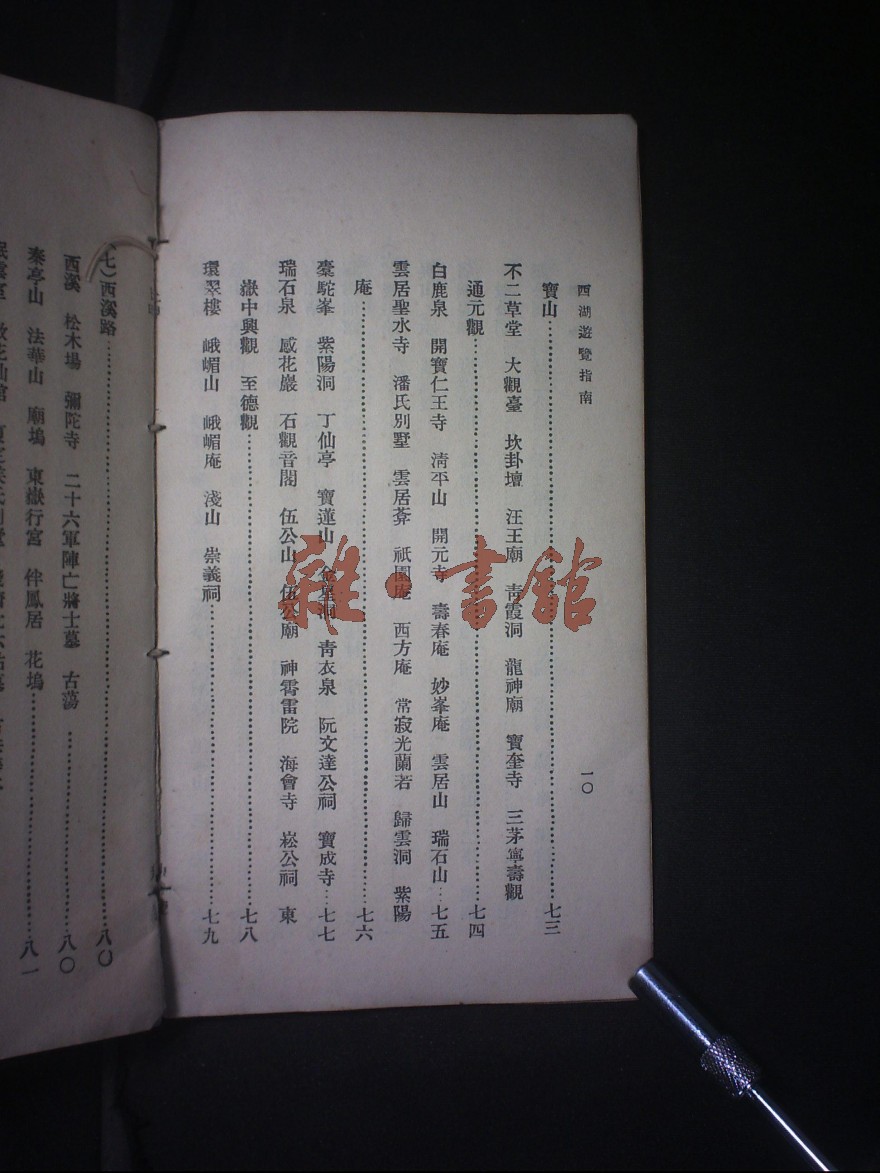 西湖遊覽指南
一〇
寶山……七三
不二草堂 大觀臺 坎卦壇 汪王廟 靑霞洞 龍神廟 寶奎寺 三茅寧壽觀
通元觀……七四
白鹿泉 開寶仁王寺 淸平山 開元寺 壽春庵 妙峯庵 雲居山 瑞石山…七五
雲居聖水寺 潘氏別墅 雲居葊 祇園庵 西方庵 常寂光蘭若 歸雲洞 紫陽
庵……七六
橐駝峯 紫陽洞 丁仙亭 寶蓮山 金星洞 靑衣泉 阮文達公祠 寶成寺…七七
瑞石泉 感花巖 石觀音閣 伍公山 伍公廟 神霄雷院 海會寺 崧公祠 東
嶽中興觀 至德觀……七八
環翠樓 峨嵋山 峨嵋庵 淺山 崇義祠……七九
(七)西溪路……八〇
西溪 松木場 彌陀寺 二十六軍陣亡將士墓 古蕩……八〇
秦亭山 法華山 廟塢 東嶽行宮 伴鳳居 花塢……八一
雜·書館